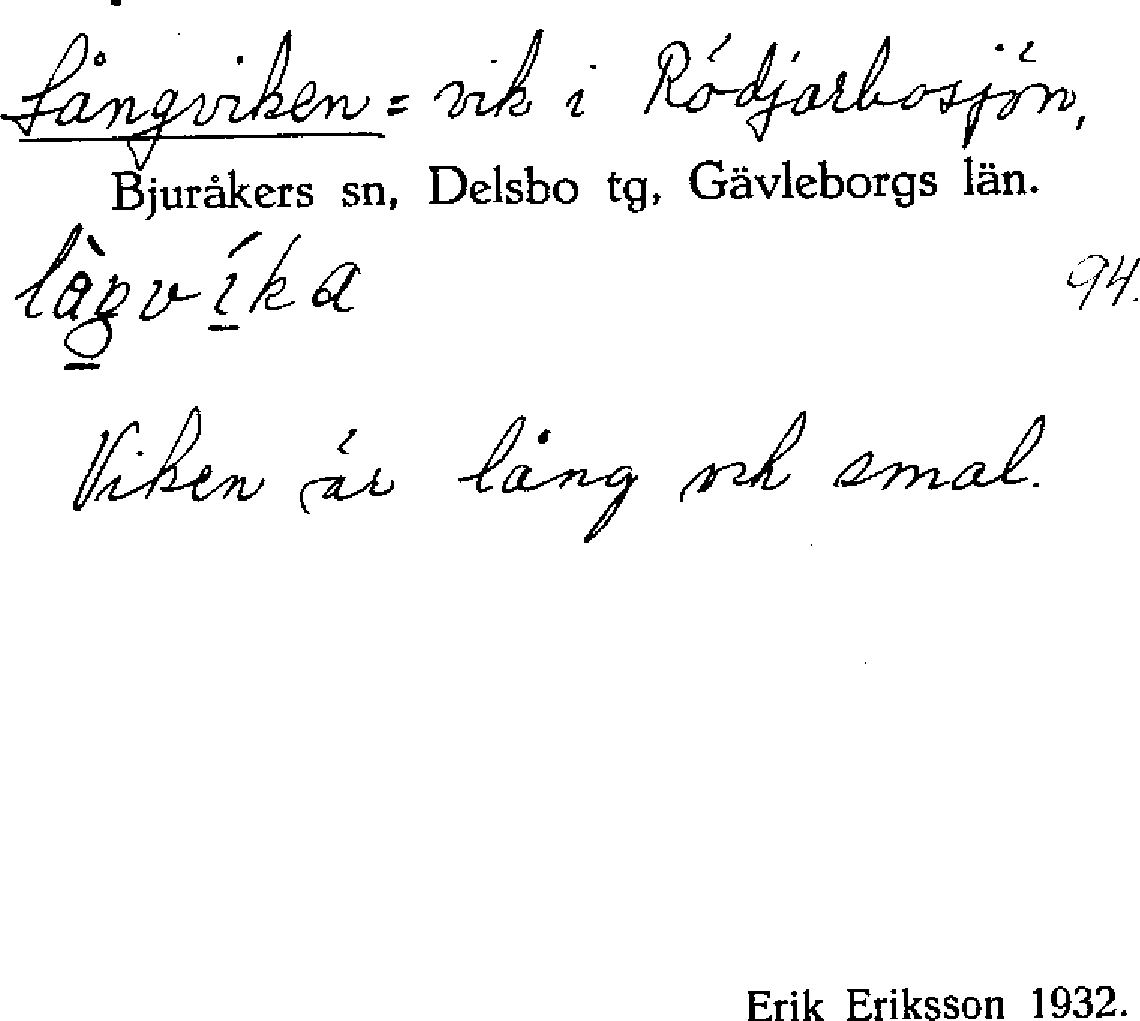 Långviken = vik i Rödjarbosjön,
Bjuråkers sn, Delsbo tg, Gävleborgs län.
94.
Viken är lång och smal.
Erik Eriksson 1932.